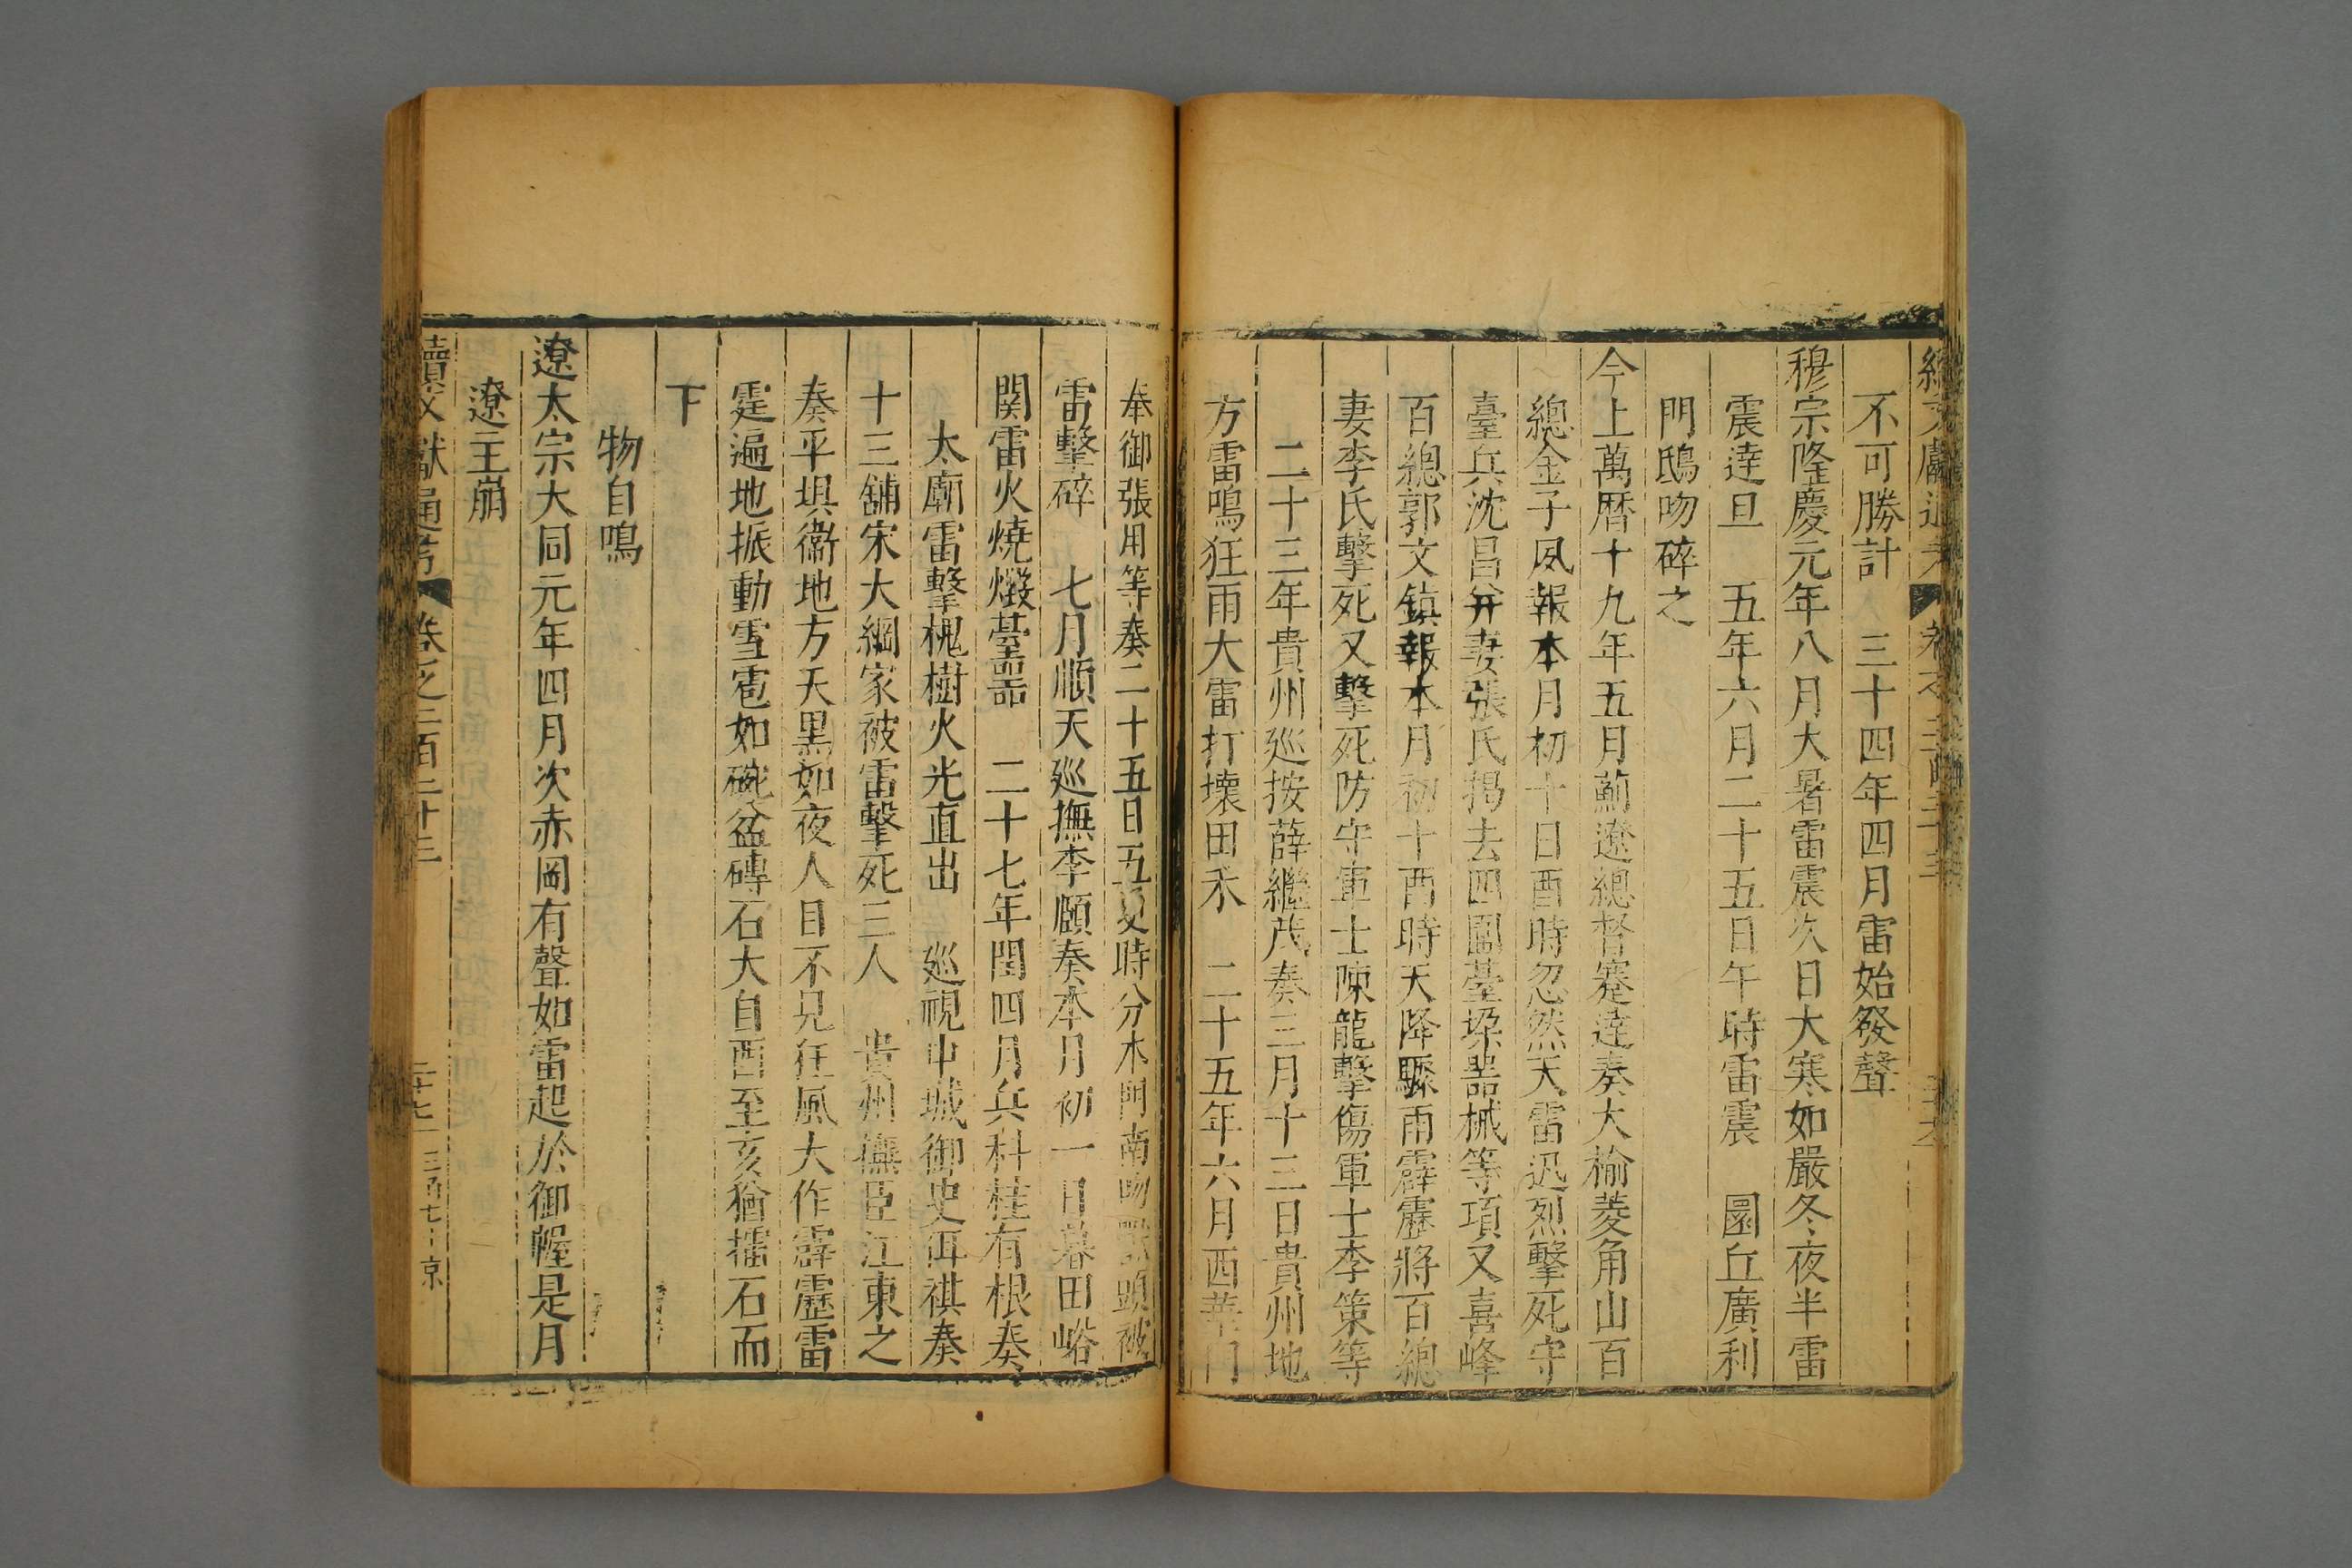 續文獻通考 卷之二百二十三 二十六
不可勝計 三十四年四月雷始發聲
穆宗隆慶元年八月大暑雷震次日大寒如嚴冬夜半雷
震達旦 五年六月二十五日午時雷震 圜丘廣利
門鴟吻碎之
今上萬曆十九年五月薊遼總督蹇達奏大榆菱角山百
總金子夙報本月初十日酉時忽然天雷迅烈擊死守
臺兵沈昌并妻張氏揭去四圍臺垜噐械等項又喜峰
百總郭文鎮報本月初十酉時天降驟雨霹靂將百總
妻李氏擊死又擊死防守軍士陳龍擊傷軍士李策等
二十三年貴州廵按薛繼茂奏三月十三日貴州地
方雷鳴狂雨大雷打壞田禾 二十五年六月西華門
奉御張用等奏二十五日五更時分本門南吻獸頭被
雷擊碎 七月順天廵撫李頤奏本月初一日暮田峪
関雷火燒燬臺噐 二十七年閏四月兵科桂有根奏
太廟雷擊槐樹火光直出 廵視中城御史
祺奏
十三舖宋大綱家被雷擊死三人 貴州撫臣江東之
奏平垻衞地方天黑如夜人目不見狂風大作霹靂雷
霆遍地振動雪雹如碗盆磚石大自酉至亥猶擂石而
下
物自鳴
遼太宗大同元年四月次赤岡有聲如雷起於御幄是月
遼主崩
續文獻通考 卷之二百二十三 二十七 三百七十 京